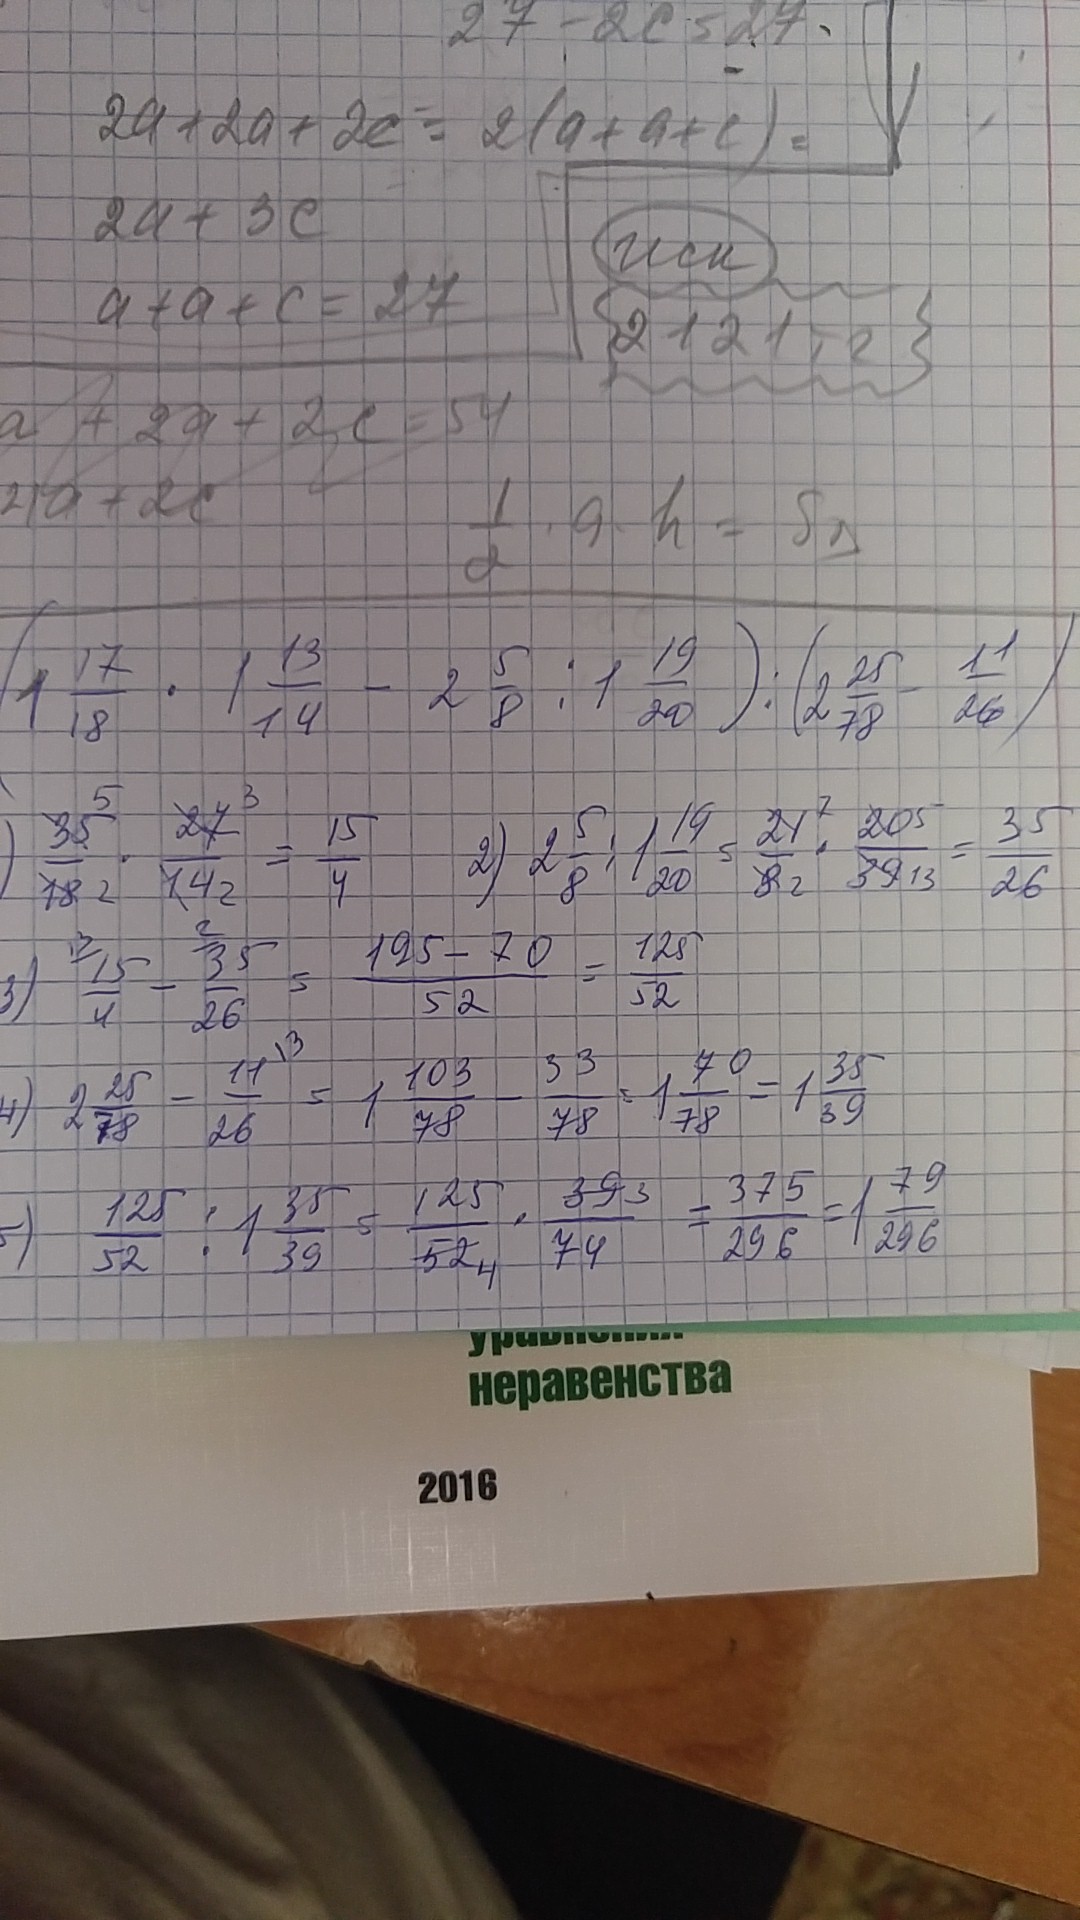 27 - 2c = 27.
2a + 2a + 2c = 2(a + a + c) =
2a + 3c
a + a + c = 27
2121
a + 2a + 2c = 54
2a + 2c
1/2 · a · h = S△
(1 17/18 · 1 13/14 - 2 5/8 : 1 19/20) : (2 25/78 - 11/26)
) 35 5/18 2 · 27 3/14 2 = 15/4 2) 2 5/8 : 1 19/20 = 21 7/8 2 · 20 5/39 13 = 35/26
3) 13 15/4 - 2 35/26 = 195 - 70/52 = 125/52
4) 2 25/78 - 11 \3/26 = 1 103/78 - 33/78 = 1 70/78 = 1 35/39
5) 125/52 : 1 35/39 = 125/52 4 · 39 3/74 = 375/296 = 1 79/296
уравнения
неравенства
2016